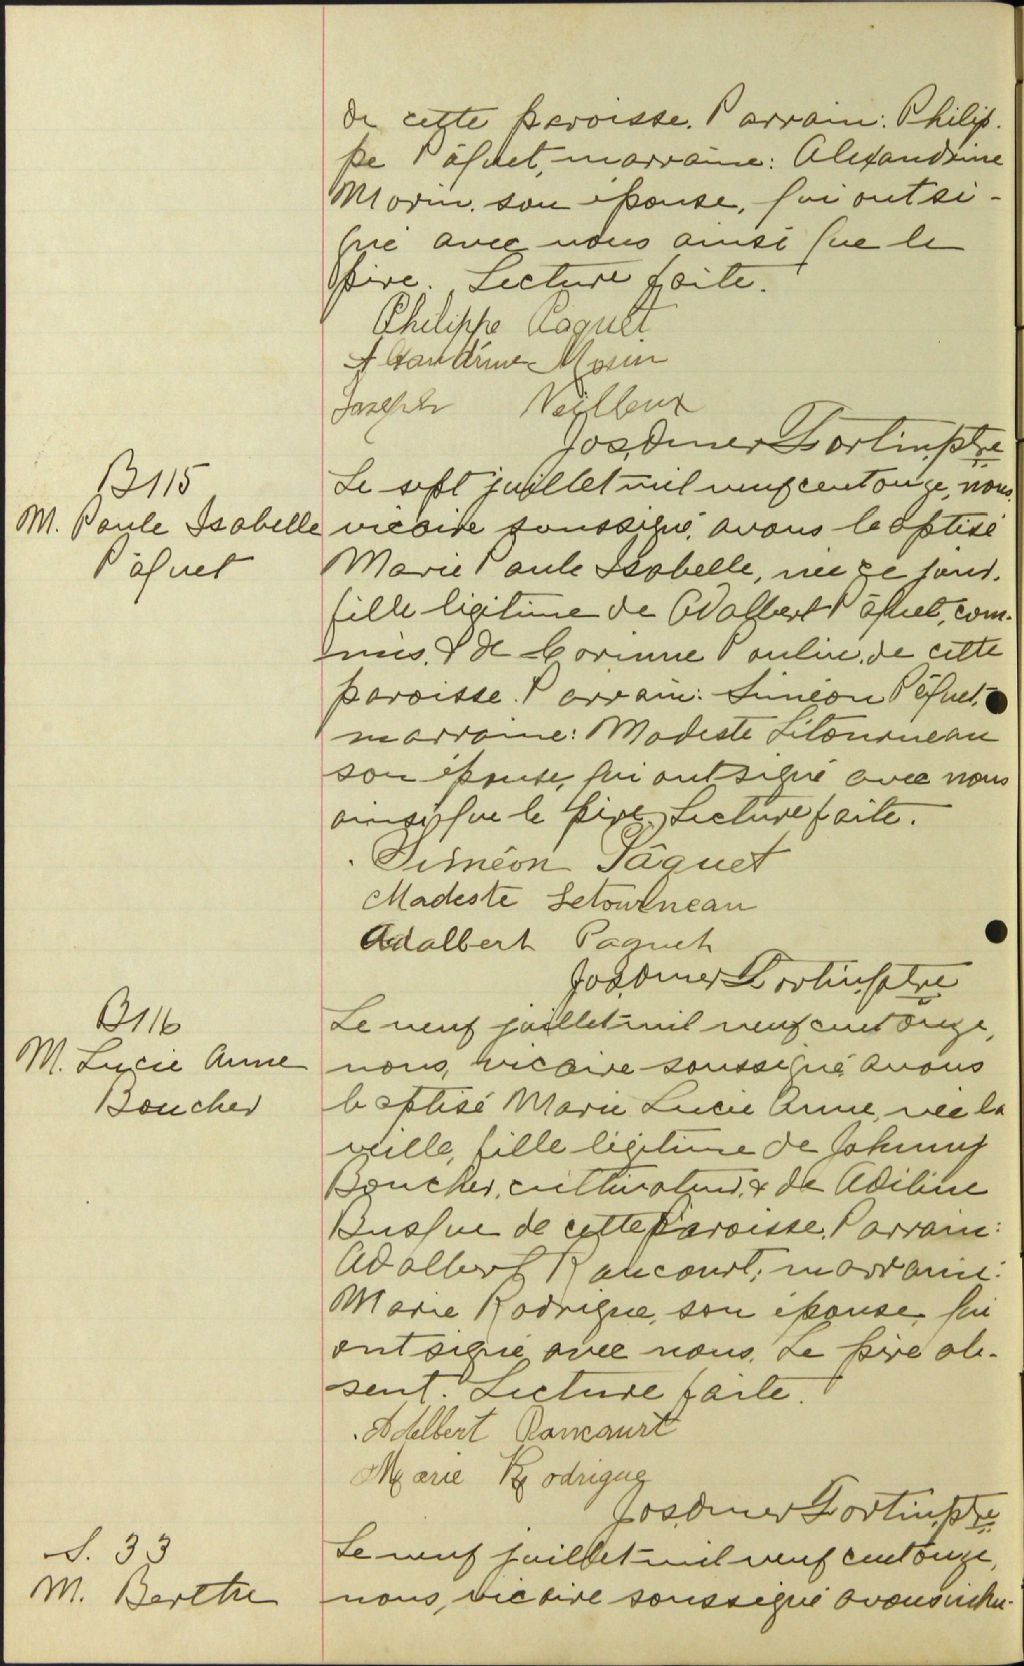 de cette paroisse. Parrain: Philip-
pe Pâquet, marraine: Alexandrine
Morin, son épouse, qui ont si-
gné avec nous ainsi que le
père. Lecture faite.
Philippe Paquet
Alexandrine Morin
Joseph Veilleux
Jos. Omer Fortin, ptre
B115
M. Paule Isabelle
Pâquet
Le sept juillet mil neuf cent onze, nous,
vicaire soussigné, avons baptisé
Marie Paule Isabelle, née ce jour,
fille légitime de Adalbert Pâquet, com-
mis, & de Corinne Poulin, de cette
paroisse. Parrain: Siméon Pâquet,
marraine: Modeste Létourneau
son épouse, qui ont signé avec nous
ainsi que le père. Lecture faite.
Siméon Pâquet
Modeste Letourneau
Adalbert Paquet
Jos. Omer Fortin, ptre
B116
M. Lucie Anne
Boucher
Le neuf juillet mil neuf cent onze,
nous, vicaire soussigné avons
baptisé Marie Lucie Anne, née la
veille, fille légitime de Johnny
Boucher, cultivateur, & de Adéline
Busque de cette paroisse. Parrain:
Adalbert Rancourt; marraine:
Marie Rodrigue, son épouse, qui
ont signé avec nous. Le père ab-
sent. Lecture faite.
Adelbert Rancourt
Marie Rodrigue
Jos. Omer Fortin, ptre
S. 33
M. Berthe
Le neuf juillet mil neuf cent onze,
nous, vicaire soussigné avons inhu-